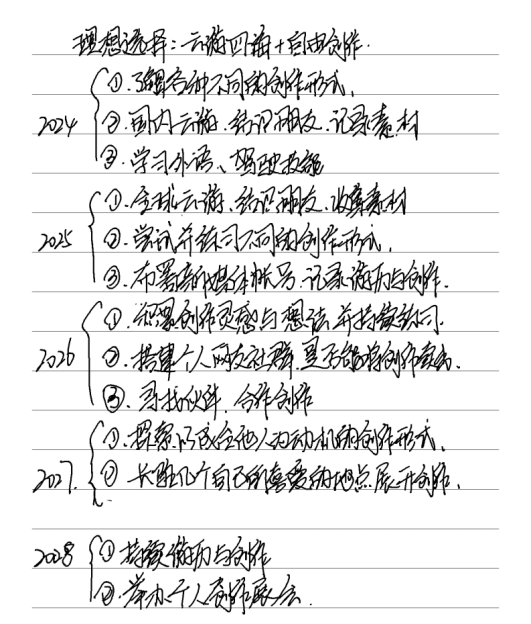 理想选择：云游四海+自由创作.
2024
①.了解各种不同的创作形式.
②.国内云游.结识朋友.记录素材
③.学习外语、驾驶技能
2025
①.全球云游.结识朋友.收集素材
②.尝试并练习不同的创作形式.
③.布署新媒体帐号.记录游历与创作.
2026
①.积累创作灵感与想法并持续练习.
②.搭建个人网友社群.是否能将创作卖出.
③.寻找伙伴.合作创作
2027.
①.探索以成全他人为动机的创作形式.
② 长驻几个自己的喜爱的地点展开创作.
2028
① 持续游历与创作
②.举办个人创作展会.